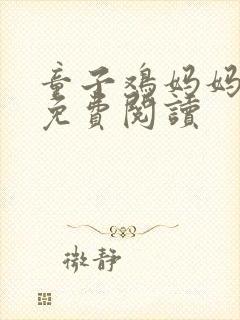 童子鸡妈妈
免費閱讀
微靜